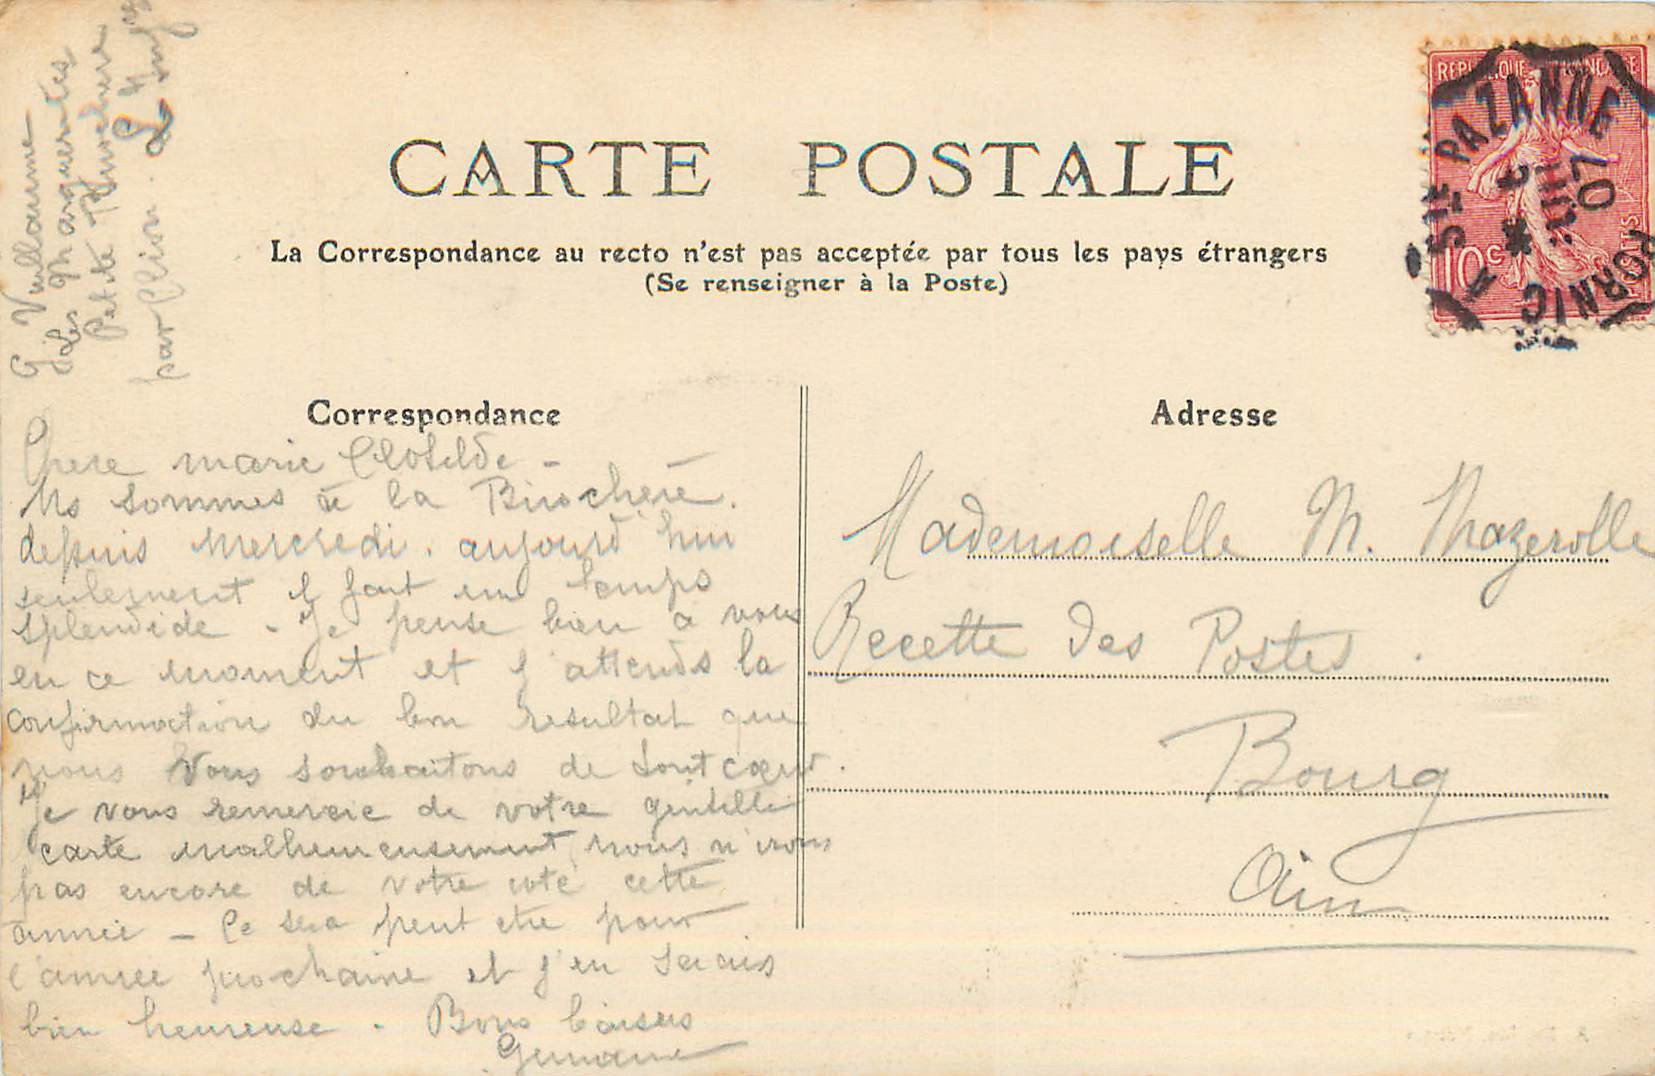 G Vuillaume
Les Marguerites
Petite Birochere
par Clion. L Inf
CARTE POSTALE
La Correspondance au recto n'est pas acceptée par tous les pays étrangers
(Se renseigner à la Poste)
REPUBLIQUE FRANÇAISE
10c
POSTES
STE PAZANNE A PORNIC
07
Correspondance
Chere marie Clotilde -
Ns sommes à la Birochère.
depuis Mercredi. aujourd'hui
seulement il fait un temps
splendide - Je pense bien à vous
en ce moment et j'attends la
confirmation du bon resultat que
nous vous souhaitons de tout cœur.
Je vous remercie de votre gentille
carte malheureusement nous n'irons
pas encore de votre coté cette
année - Ce sera peut etre pour
l'année prochaine et j'en serais
bien heureuse. Bons baisers
Germaine
Adresse
Mademoiselle M. Mazerolle
Recette des Postes.
Bourg
Ain